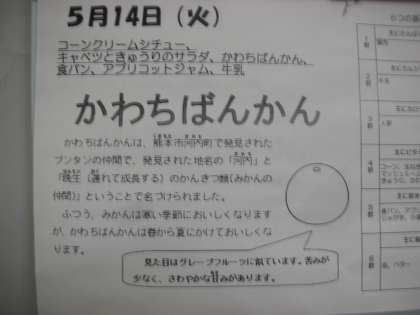 5月14日（火）
コーンクリームシチュー、
キャベツときゅうりのサラダ、かわちばんかん、
食パン、アプリコットジャム、牛乳
かわちばんかん
かわちばんかんは、熊本市河内町で発見された
ブンタンの仲間で、発見された地名の「河内」と
「晩生（遅れて成長する）のかんきつ類(みかんの
仲間)」ということで名づけられました。
ふつう、みかんは寒い季節においしくなります
が、かわちばんかんは春から夏にかけておいしくな
ります。
見た目はグレープフルーツに似ています。苦みが
少なく、さわやかな甘みがあります。
1群
2群
3群
4群
5群
6群